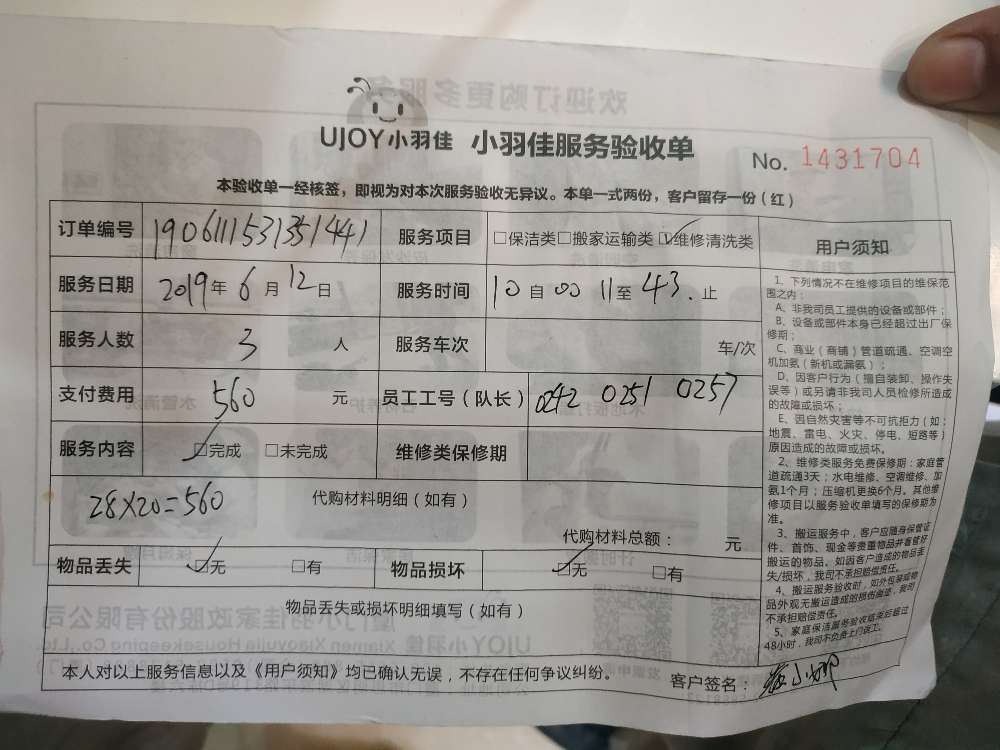 UJOY小羽佳 小羽佳服务验收单
No. 1431704
本验收单一经核签，即视为对本次服务验收无异议。本单一式两份，客户留存一份（红）
订单编号 1906111531351441 服务项目 □保洁类□搬家运输类☑维修清洗类
服务日期 2019年6月12日 服务时间 10自00 11至43.止
服务人数 3人 服务车次 车/次
支付费用 560元 员工工号（队长） 042 0251 0257
服务内容 ☑完成 □未完成 维修类保修期
28×20=560 代购材料明细（如有）
代购材料总额： 元
物品丢失 ☑无 □有 物品损坏 ☑无 □有
物品丢失或损坏明细填写（如有）
本人对以上服务信息以及《用户须知》均已确认无误，不存在任何争议纠纷。
客户签名： 小娜
用户须知
1、下列情况不在维修项目的维保范
围之内：
A、非我司员工提供的设备或部件；
B、设备或部件本身已经超过出厂保
修期；
C、商业（商铺）管道疏通、空调空
机加氨（新机或漏氨）；
D、因客户行为（擅自装卸、操作失
误等）或另请非我司人员检修所造成
的故障或损坏；
E、因自然灾害等不可抗拒力（如：
地震、雷电、火灾、停电、短路等）
原因造成的故障或损坏。
2、维修类服务免费保修期：家庭管
道疏通3天；水电维修、空调维修、加
氨1个月；压缩机更换6个月。其他维
修项目以服务验收单填写的保修期为
准。
3、搬运服务中，客户应随身保管证
件、首饰、现金等贵重物品并看管好
搬运的物品。如因客户造成的物品丢
失/损坏，我司不承担赔偿责任。
4、搬运服务验收时，如外包装或物
品外观无搬运造成的损伤痕迹，我司
不承担赔偿责任。
5、家庭保洁服务验收结束后超过
48小时，我司不负责上门返工。